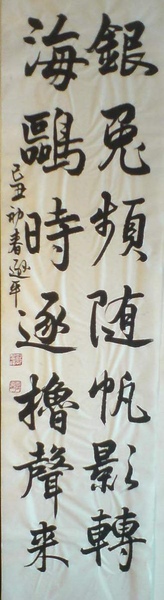 銀兎頻随帆影轉
海鷗時逐櫓聲来
己丑初春逊平